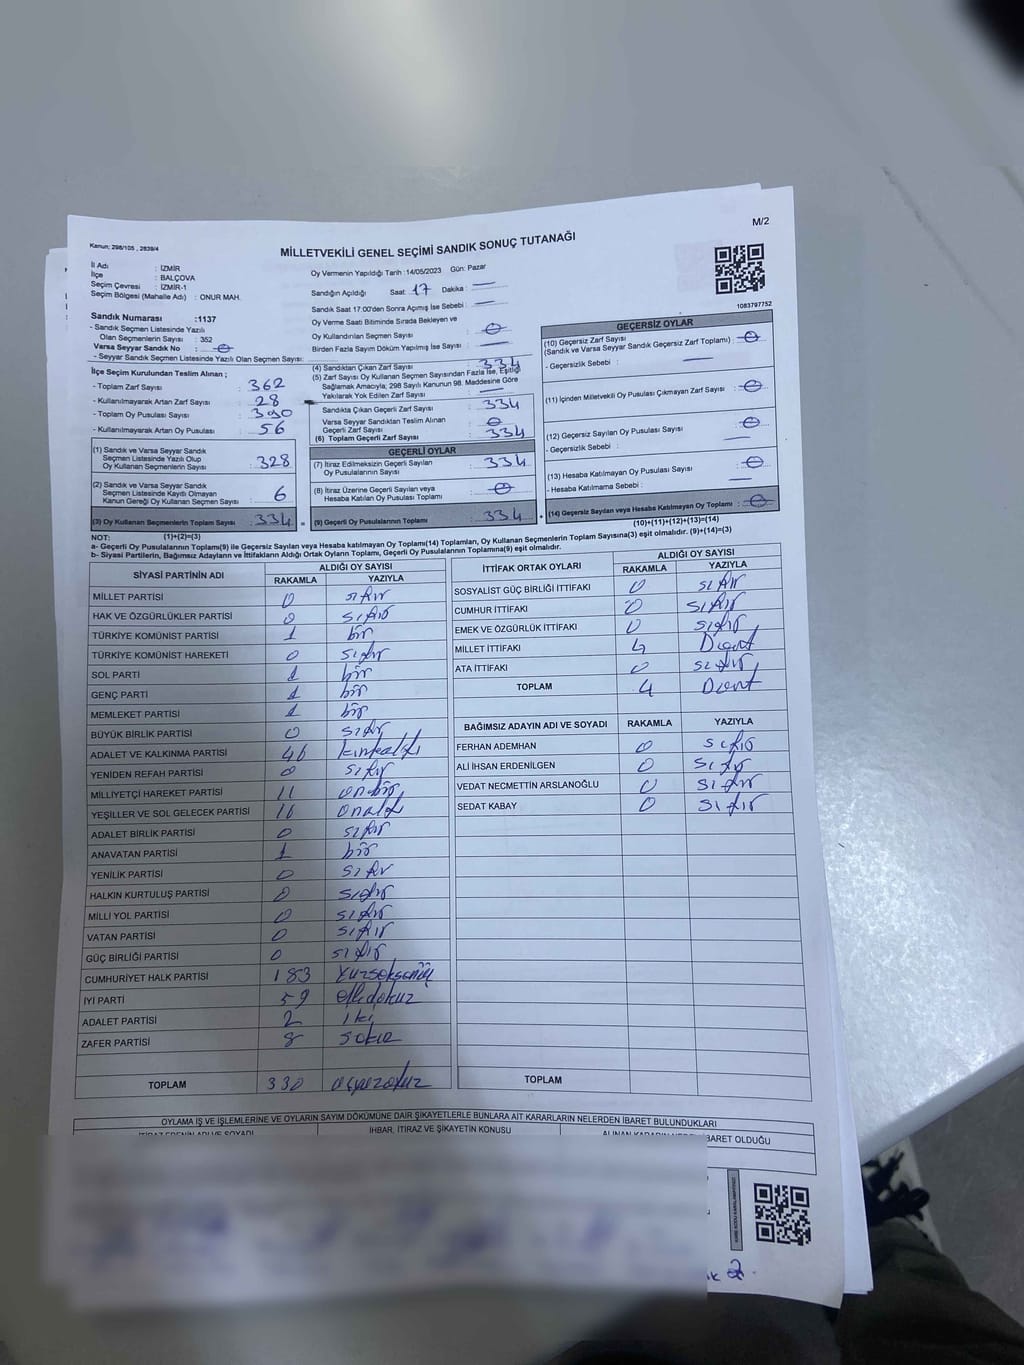 M/2
Kanun; 298/105 , 2839/4
MİLLETVEKİLİ GENEL SEÇİMİ SANDIK SONUÇ TUTANAĞI
İl Adı : İZMİR
İlçe : BALÇOVA
Seçim Çevresi : İZMİR-1
Seçim Bölgesi (Mahalle Adı) : ONUR MAH.
Sandık Numarası :1137
- Sandık Seçmen Listesinde Yazılı
Olan Seçmenlerin Sayısı : 352
Varsa Seyyar Sandık No : 0
- Seyyar Sandık Seçmen Listesinde Yazılı Olan Seçmen Sayısı:
Oy Vermenin Yapıldığı Tarih :14/05/2023 Gün: Pazar
Sandığın Açıldığı Saat : 17 Dakika : —
Sandık Saat 17:00'den Sonra Açılmış İse Sebebi : —
Oy Verme Saati Bitiminde Sırada Bekleyen ve
Oy Kullandırılan Seçmen Sayısı : 0
Birden Fazla Sayım Döküm Yapılmış İse Sayısı : —
1083797752
İlçe Seçim Kurulundan Teslim Alınan ;
- Toplam Zarf Sayısı : 362
- Kullanılmayarak Artan Zarf Sayısı : 28
- Toplam Oy Pusulası Sayısı : 390
- Kullanılmayarak Artan Oy Pusulası : 56
(1) Sandık ve Varsa Seyyar Sandık
Seçmen Listesinde Yazılı Olup
Oy Kullanan Seçmenlerin Sayısı : 328
(2) Sandık ve Varsa Seyyar Sandık
Seçmen Listesinde Kayıtlı Olmayan
Kanun Gereği Oy Kullanan Seçmen Sayısı : 6
(3) Oy Kullanan Seçmenlerin Toplam Sayısı : 334
(1)+(2)=(3)
(4) Sandıktan Çıkan Zarf Sayısı : 334
(5) Zarf Sayısı Oy Kullanan Seçmen Sayısından Fazla İse, Eşitliği
Sağlamak Amacıyla; 298 Sayılı Kanunun 98. Maddesine Göre
Yakılarak Yok Edilen Zarf Sayısı : —
Sandıkta Çıkan Geçerli Zarf Sayısı : 334
Varsa Seyyar Sandıktan Teslim Alınan
Geçerli Zarf Sayısı : 0
(6) Toplam Geçerli Zarf Sayısı : 334
GEÇERLİ OYLAR
(7) İtiraz Edilmeksizin Geçerli Sayılan
Oy Pusulalarının Sayısı : 334
(8) İtiraz Üzerine Geçerli Sayılan veya
Hesaba Katılan Oy Pusulası Toplamı : 0
= (9) Geçerli Oy Pusulalarının Toplamı : 334 +
GEÇERSİZ OYLAR
(10) Geçersiz Zarf Sayısı : 0
(Sandık ve Varsa Seyyar Sandık Geçersiz Zarf Toplamı)
- Geçersizlik Sebebi : —
(11) İçinden Milletvekili Oy Pusulası Çıkmayan Zarf Sayısı : 0
(12) Geçersiz Sayılan Oy Pusulası Sayısı : 0
- Geçersizlik Sebebi : —
(13) Hesaba Katılmayan Oy Pusulası Sayısı : 0
- Hesaba Katılmama Sebebi : —
(14) Geçersiz Sayılan veya Hesaba Katılmayan Oy Toplamı : 0
(10)+(11)+(12)+(13)=(14)
NOT:
a- Geçerli Oy Pusulalarının Toplamı(9) ile Geçersiz Sayılan veya Hesaba katılmayan Oy Toplamı(14) Toplamları, Oy Kullanan Seçmenlerin Toplam Sayısına(3) eşit olmalıdır. (9)+(14)=(3)
b- Siyasi Partilerin, Bağımsız Adayların ve İttifakların Aldığı Ortak Oyların Toplamı, Geçerli Oy Pusulalarının Toplamına(9) eşit olmalıdır.
SİYASİ PARTİNİN ADI ALDIĞI OY SAYISI
RAKAMLA YAZIYLA
MİLLET PARTİSİ 0 sıfır
HAK VE ÖZGÜRLÜKLER PARTİSİ 0 sıfır
TÜRKİYE KOMÜNİST PARTİSİ 1 bir
TÜRKİYE KOMÜNİST HAREKETİ 0 sıfır
SOL PARTİ 1 bir
GENÇ PARTİ 1 bir
MEMLEKET PARTİSİ 1 bir
BÜYÜK BİRLİK PARTİSİ 0 sıfır
ADALET VE KALKINMA PARTİSİ 46 kırkaltı
YENİDEN REFAH PARTİSİ 0 sıfır
MİLLİYETÇİ HAREKET PARTİSİ 11 onbir
YEŞİLLER VE SOL GELECEK PARTİSİ 16 onaltı
ADALET BİRLİK PARTİSİ 0 sıfır
ANAVATAN PARTİSİ 1 bir
YENİLİK PARTİSİ 0 sıfır
HALKIN KURTULUŞ PARTİSİ 0 sıfır
MİLLİ YOL PARTİSİ 0 sıfır
VATAN PARTİSİ 0 sıfır
GÜÇ BİRLİĞİ PARTİSİ 0 sıfır
CUMHURİYET HALK PARTİSİ 183 Yüzseksenüç
İYİ PARTİ 59 ellidokuz
ADALET PARTİSİ 2 iki
ZAFER PARTİSİ 8 sekiz
TOPLAM 330 üçyüzotuz
İTTİFAK ORTAK OYLARI ALDIĞI OY SAYISI
RAKAMLA YAZIYLA
SOSYALİST GÜÇ BİRLİĞİ İTTİFAKI 0 sıfır
CUMHUR İTTİFAKI 0 sıfır
EMEK VE ÖZGÜRLÜK İTTİFAKI 0 sıfır
MİLLET İTTİFAKI 4 Dört
ATA İTTİFAKI 0 sıfır
TOPLAM 4 Dört
BAĞIMSIZ ADAYIN ADI VE SOYADI RAKAMLA YAZIYLA
FERHAN ADEMHAN 0 sıfır
ALİ İHSAN ERDENİLGEN 0 sıfır
VEDAT NECMETTİN ARSLANOĞLU 0 sıfır
SEDAT KABAY 0 sıfır
TOPLAM
OYLAMA İŞ VE İŞLEMLERİNE VE OYLARIN SAYIM DÖKÜMÜNE DAİR ŞİKAYETLERLE BUNLARA AİT KARARLARIN NELERDEN İBARET BULUNDUKLARI
İTİRAZ EDENİN ADI VE SOYADI İHBAR, İTİRAZ VE ŞİKAYETİN KONUSU
BARET OLDUĞU
2